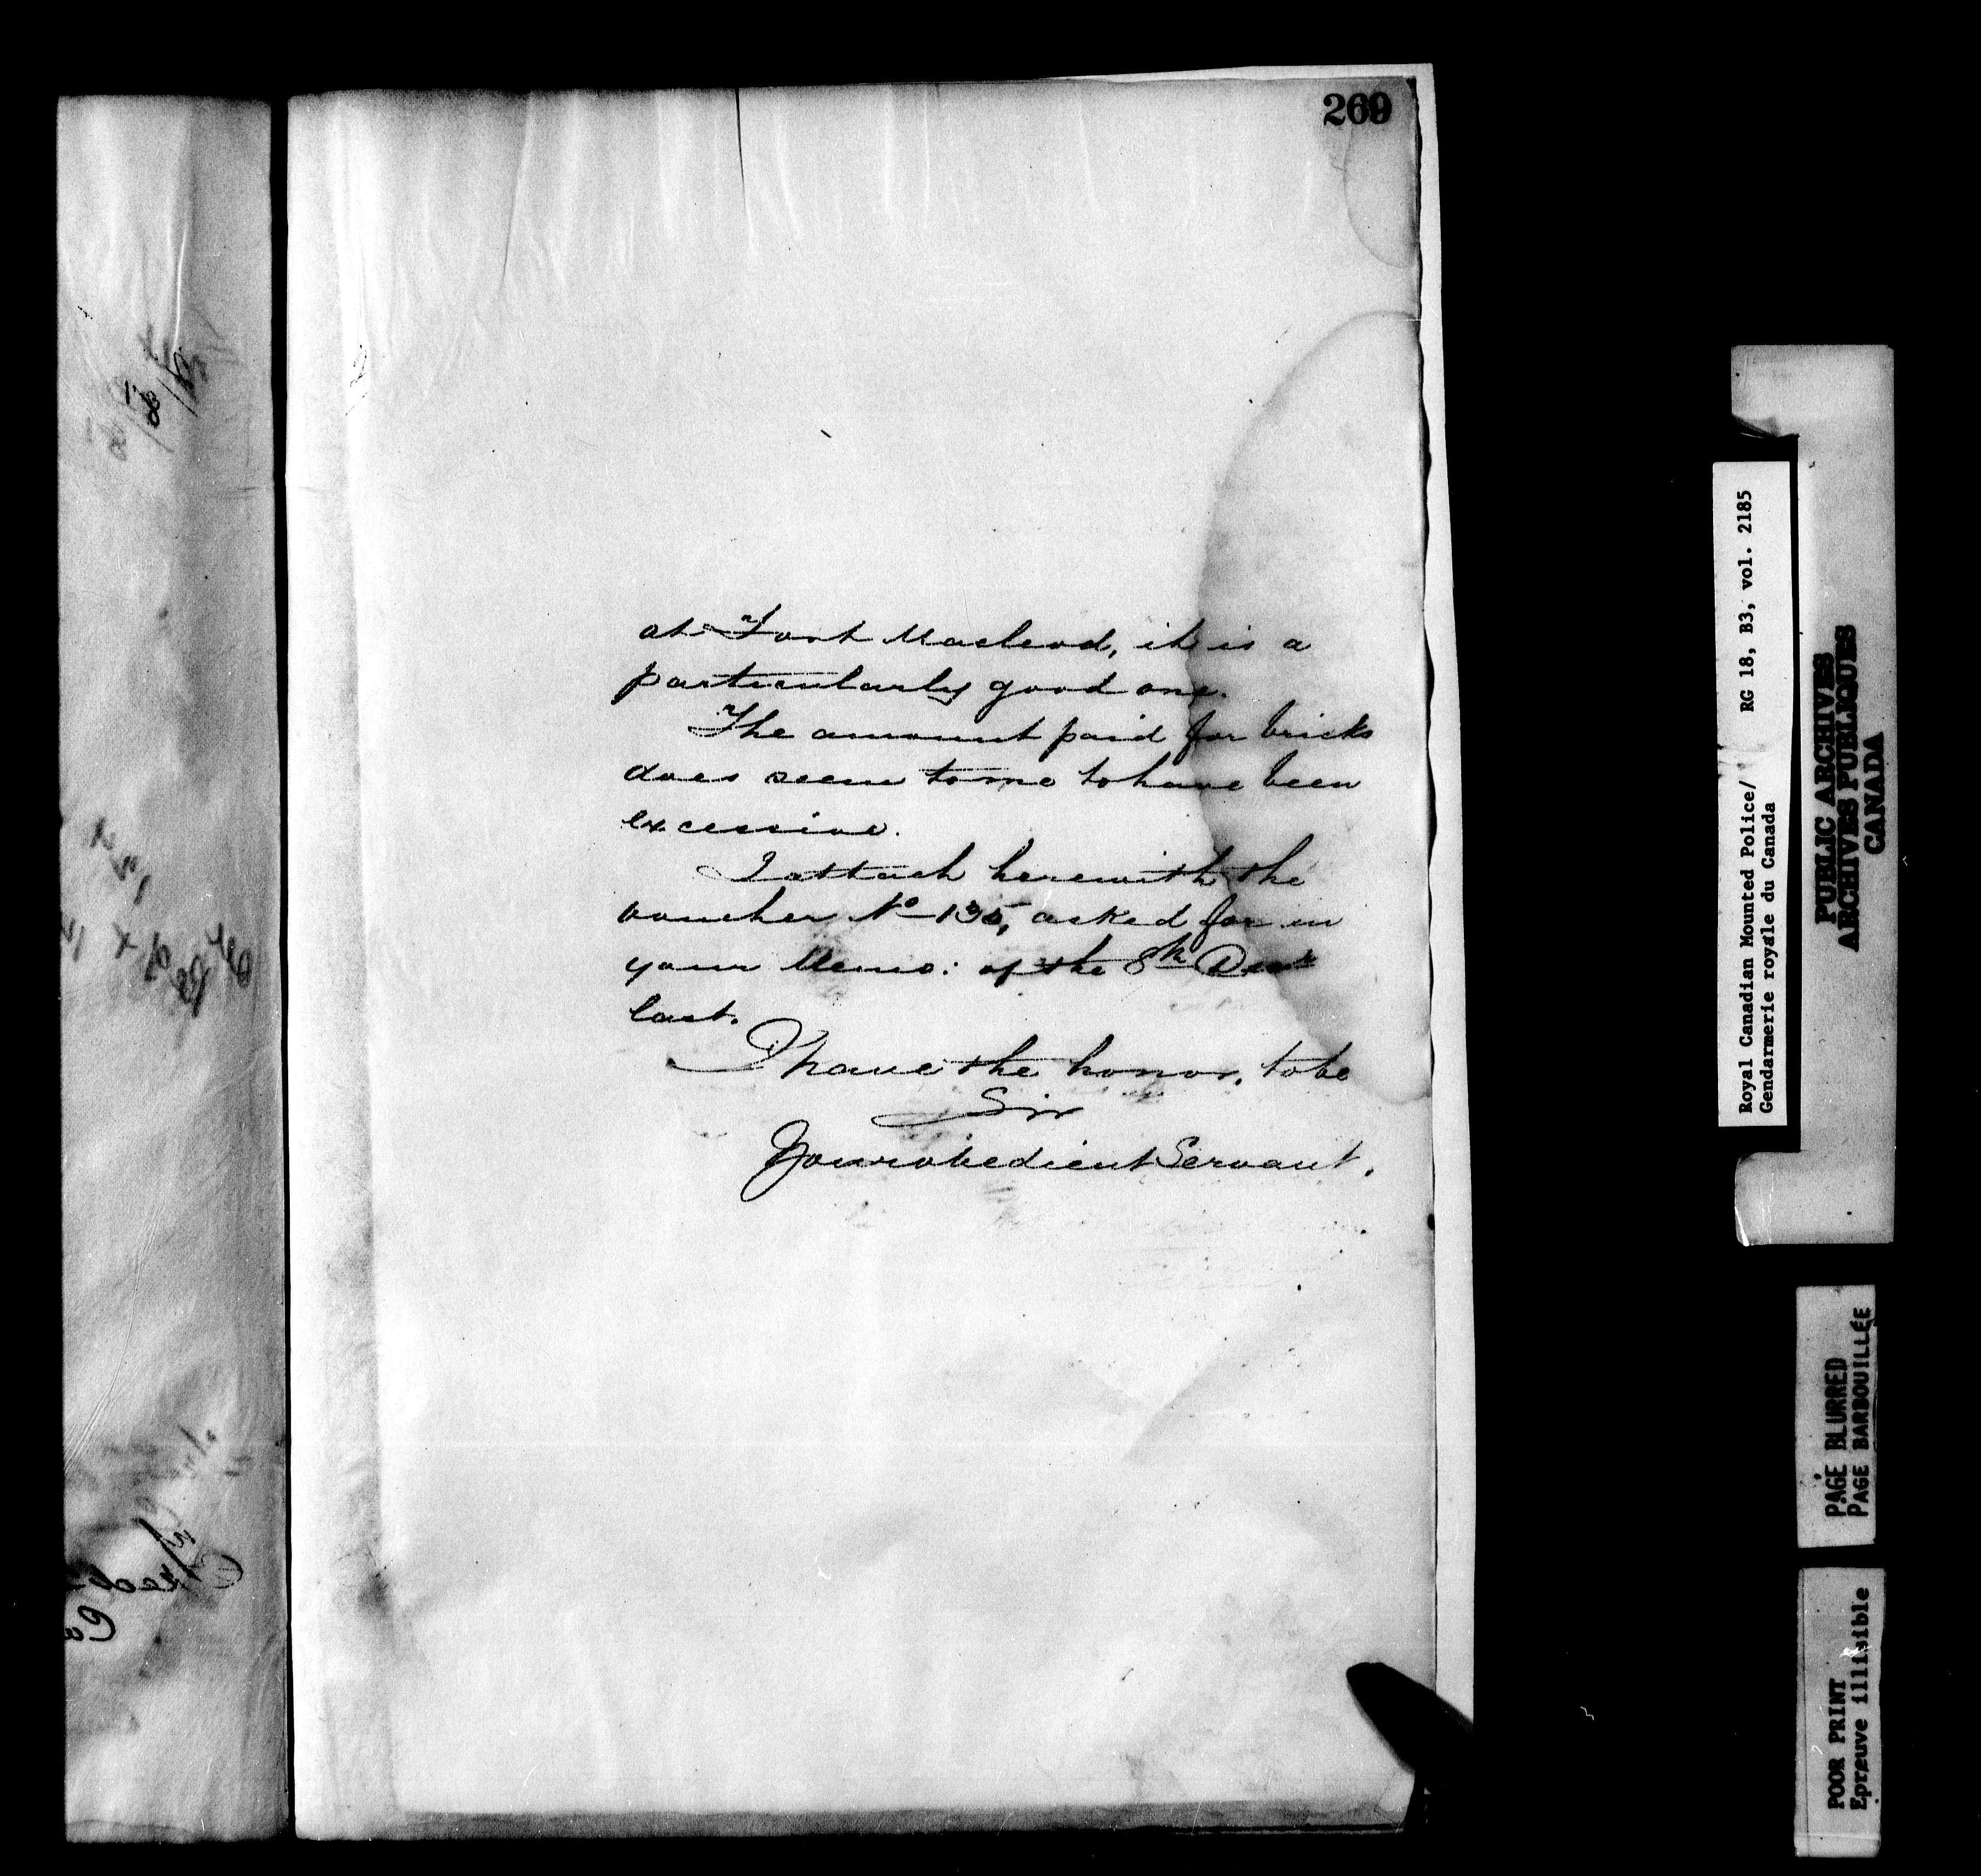 269
at Fort Macleod, it is a
particularly good one.
The amount paid for bricks
does seem to me to have been
excessive.
I attach herewith the
voucher No 135, asked for in
your Memo: of the 8th Decr
last.
I have the honor, to be
Sir
Your obedient Servant.
Royal Canadian Mounted Police/ RG 18, B3, vol. 2185
Gendarmerie royale du Canada
PUBLIC ARCHIVES
ARCHIVES PUBLIQUES
CANADA
PAGE BLURRED
PAGE BARBOUILLÉE
POOR PRINT
Epreuve illisible